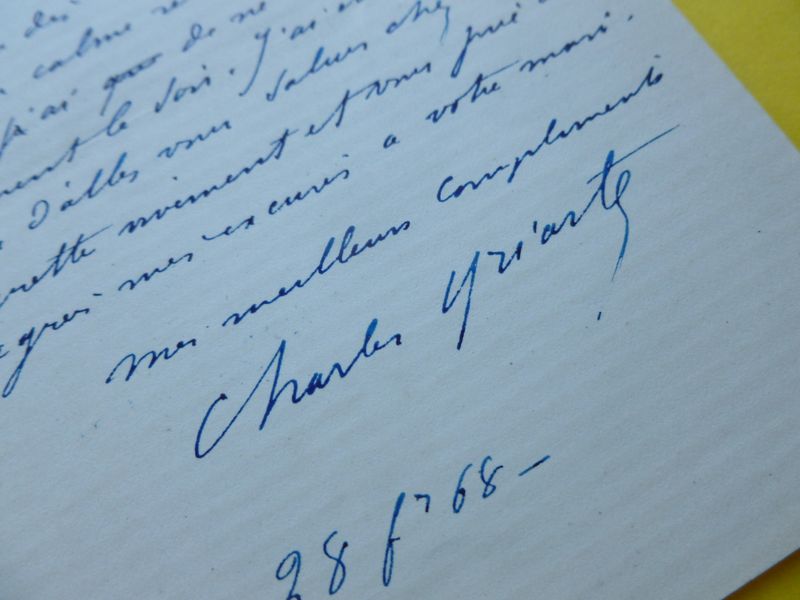 calme
j'ai que de ne
le soir. j'ai
d'aller vous saluer chez
vivement et vous prie
mes excuses a votre mari.
mes meilleurs compliments
Charles Yriarte
28 fr 68 -